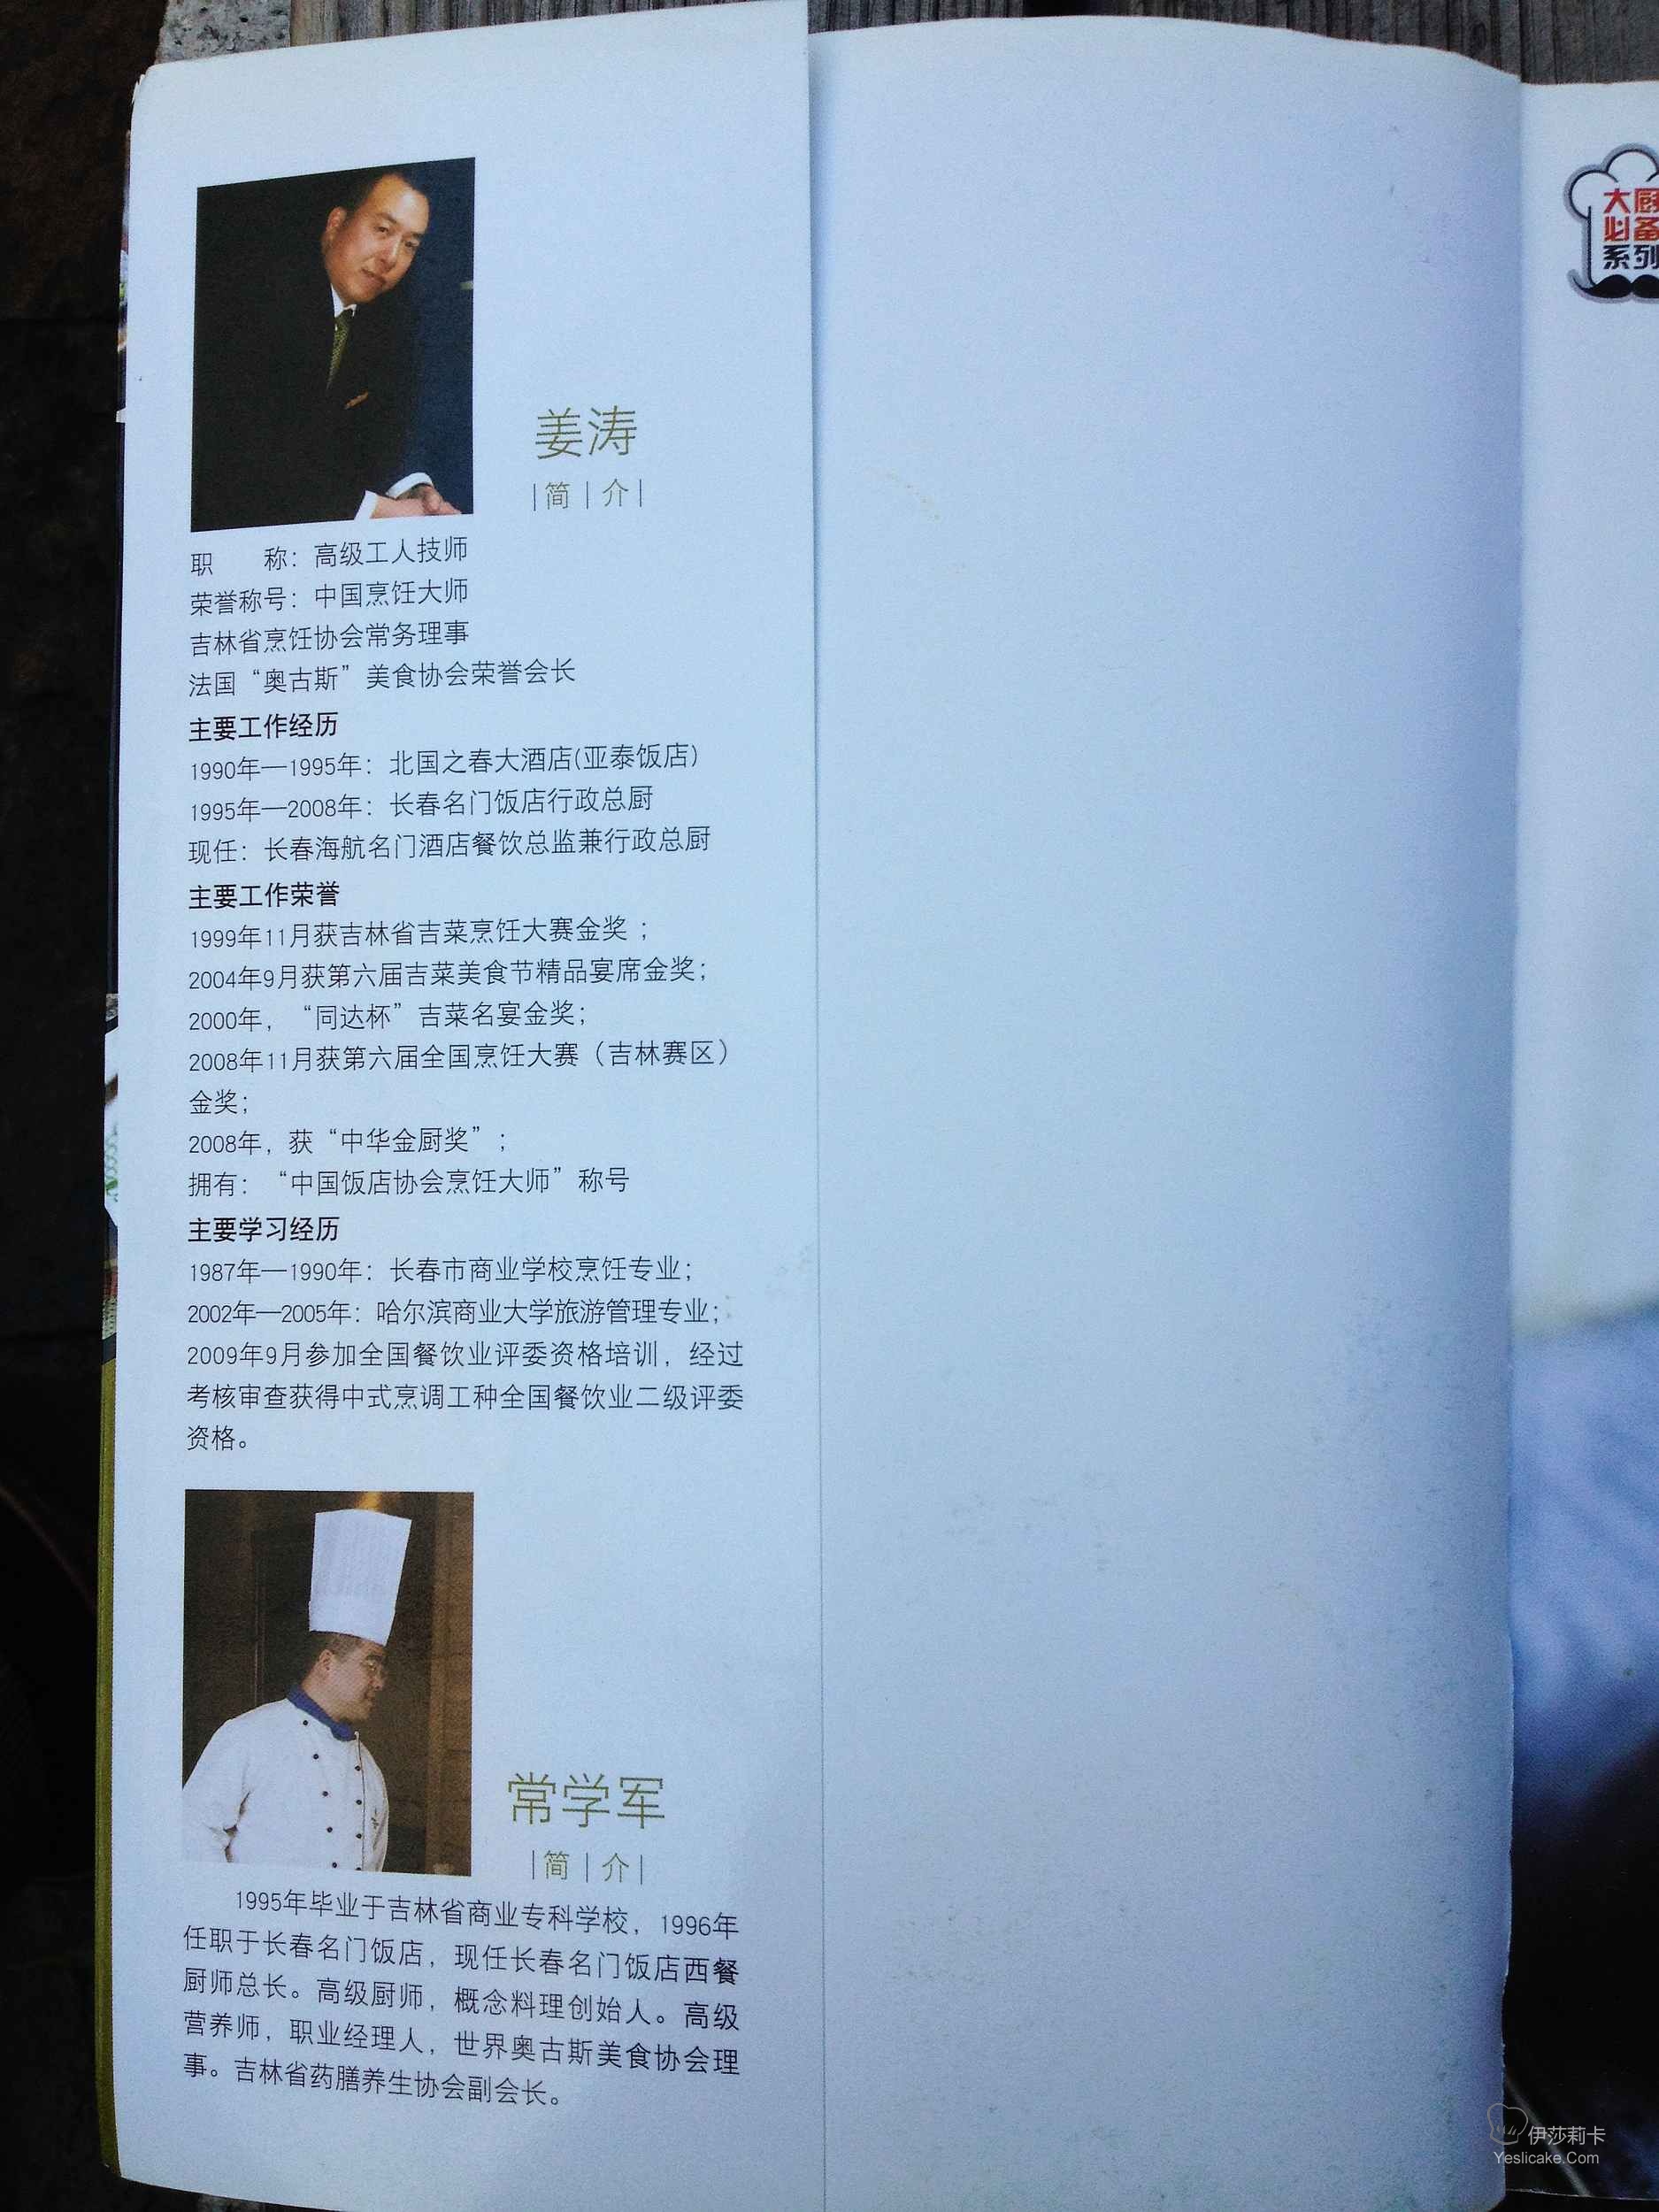 姜涛
|简|介|
职　　称：高级工人技师
荣誉称号：中国烹饪大师
吉林省烹饪协会常务理事
法国“奥古斯”美食协会荣誉会长
主要工作经历
1990年—1995年：北国之春大酒店(亚泰饭店)
1995年—2008年：长春名门饭店行政总厨
现任：长春海航名门酒店餐饮总监兼行政总厨
主要工作荣誉
1999年11月获吉林省吉菜烹饪大赛金奖；
2004年9月获第六届吉菜美食节精品宴席金奖；
2000年，“同达杯”吉菜名宴金奖；
2008年11月获第六届全国烹饪大赛（吉林赛区）
金奖；
2008年，获“中华金厨奖”；
拥有：“中国饭店协会烹饪大师”称号
主要学习经历
1987年—1990年：长春市商业学校烹饪专业；
2002年—2005年：哈尔滨商业大学旅游管理专业；
2009年9月参加全国餐饮业评委资格培训，经过
考核审查获得中式烹调工种全国餐饮业二级评委
资格。
常学军
|简|介|
1995年毕业于吉林省商业专科学校，1996年
任职于长春名门饭店，现任长春名门饭店西餐
厨师总长。高级厨师，概念料理创始人。高级
营养师，职业经理人，世界奥古斯美食协会理
事。吉林省药膳养生协会副会长。
大厨
必备
系列
伊莎莉卡
Yeslicake.Com